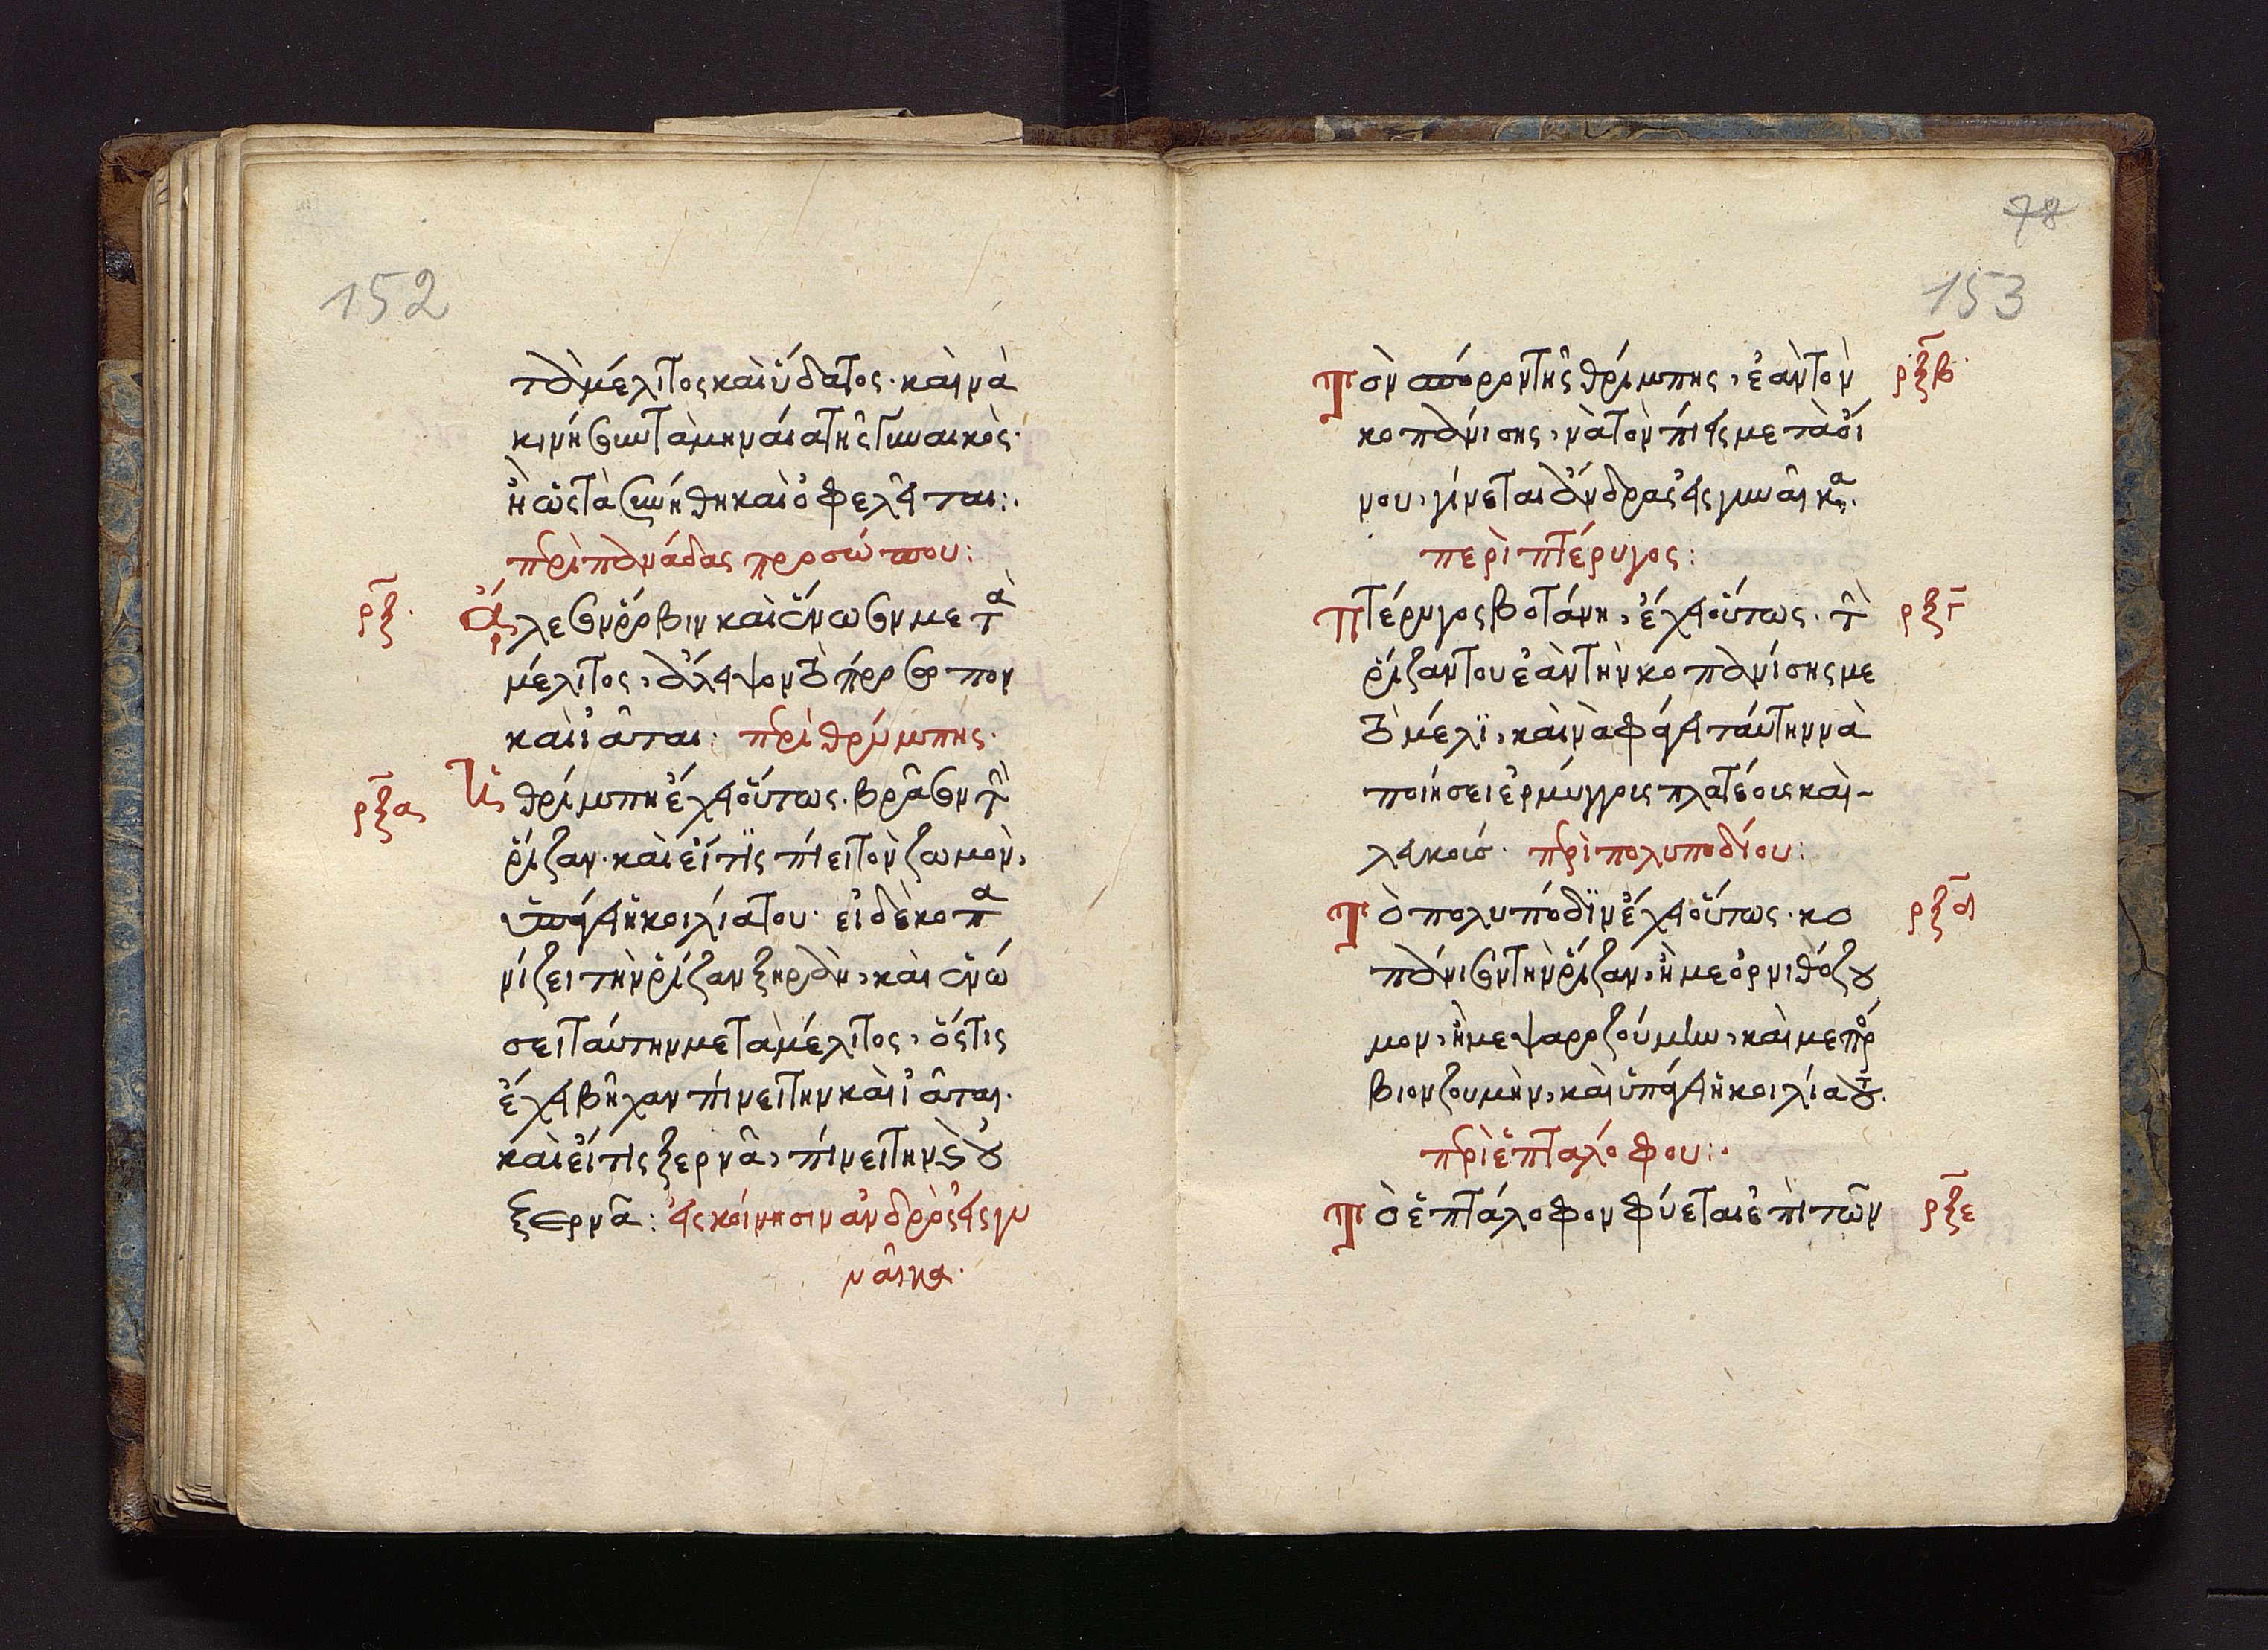 152
τὰ μέλιτος καὶ ὕδατος· καὶ νὰ
κινήσουν τὰ μηναία τῆς γυναικὸς·
ἢ ὡς τὰ συνήθη καὶ ὀφελεῖται:·
περὶ πανάδας προσώπου:
ρξ·
ἄλεσον ῥόβιν καὶ ἕνωσον μετὰ
μέλιτος, ἄλειψον τὸ πρόσωπον
καὶ ἰᾶται: περὶ θρύμπης·
ρξα
Ἡ θρίμπη ἔχει οὕτως· βράσον τὴν
ῥίζαν· καὶ εἴ τις πίει τὸν ζωμὸν,
ὑπάγει ἡ κοιλία του· εἰ δὲ κοπα
νίζει τὴν ῥίζαν ξηρὰν, καὶ ἑνώ
σει ταύτην μετὰ μέλιτος, ὅστις
ἔχει βῆχαν πίνει την καὶ ἰᾶται·
καὶ εἴ τις ξερνᾶ, πίνει την καὶ οὐ
ξερνᾶ: εἰς κοίνησιν ἀνδρὸς εἰς γυ
ναῖκα·
78
153
Τὸν σπόρον τῆς θρίμπης, ἐὰν τὸν
ρξβ·
κοπανίσης, νὰ τὸν πίεις μετὰ οἴ
νου, γίνεται ἄνδρας εἰς γυναῖκα·
περὶ πτέρυγος:
Πτέρυγος βοτάνη, ἔχει οὕτως· τὴν
ρξγ
ῥίζαν του ἐὰν τὴν κοπανίσης με
τὸ μέλι, καὶ νὰ φάγει ταύτην νὰ
ποιήσει ἑρμύγγοις πλατέοις καὶ-
λεικοισ· περὶ πολυποδίου:
Τὸ πολυπόδιν ἔχει οὕτως· κο
ρξδ
πάνισον τὴν ῥίζαν, ἢ με ὀρνιθόζου
μον, ἢ με ψαροζούμην, καὶ με προ
βιονζουμὴν, καὶ ὑπάγει ἡ κοιλία του·
περὶ ἑπταλόφου:·
Τὸ ἑπτάλοφον φύεται ἐπὶ τῶν
ρξε